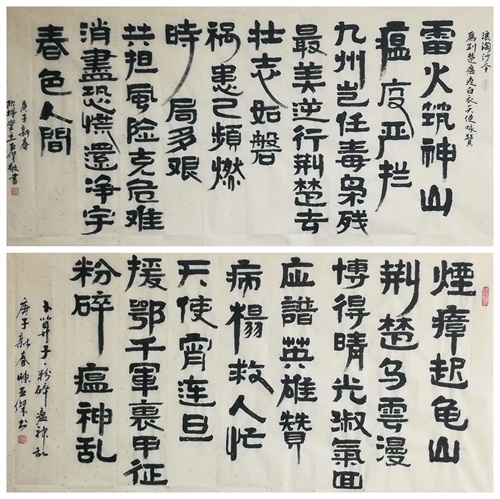 浪淘沙令
雷火筑神山
瘟疫严拦
九州岂任毒枭残
最美逆行荆楚去
壮志如磐
祸患已頻燃
時局多艰
共担風险克危难
消盡恐慌還净宇
春色人間
庚子新春
煙瘴起龟山
荆楚乌雲漫
博得晴光淑氣回
应譜英雄贊
病榻救人忙
天使宵连旦
援鄂千軍裹甲征
粉碎瘟神乱
卜算子·粉碎瘟神乱
庚子新春